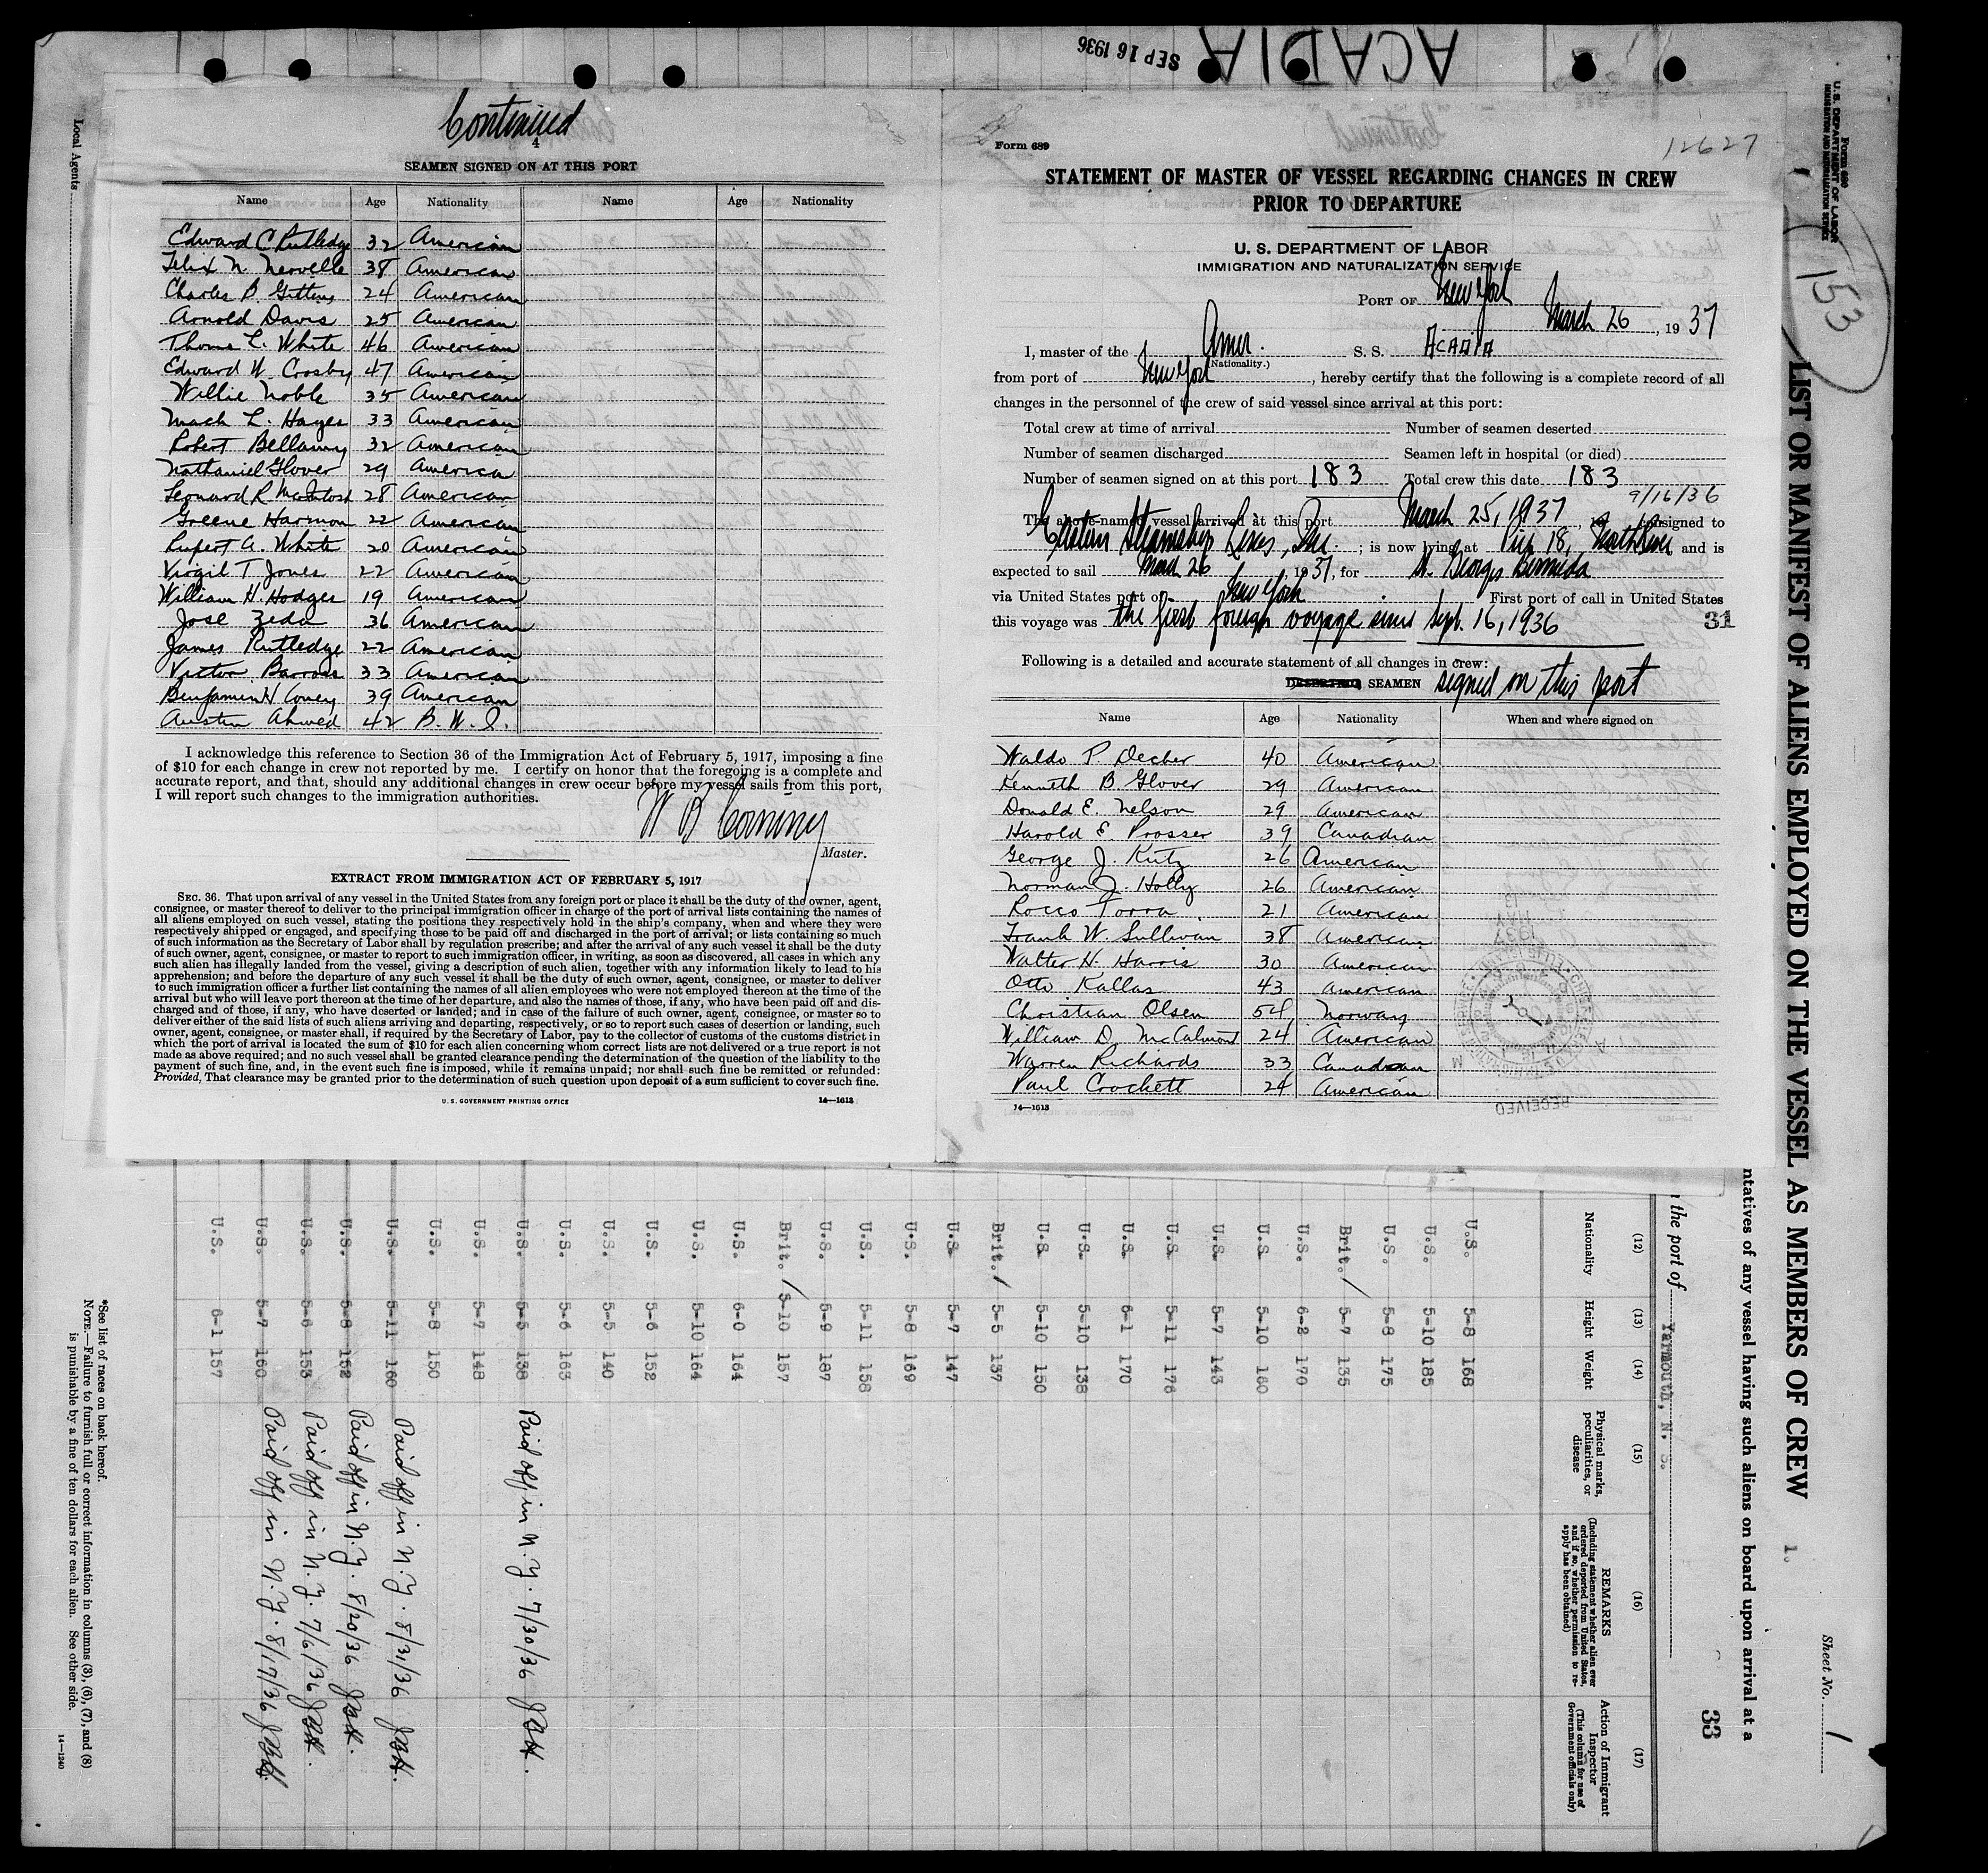 SEP 16 1936
ACADIA
Continued
4
SEAMEN SIGNED ON AT THIS PORT
Name Age Nationality Name Age Nationality
Edward C Rutledge 32 American
Felix N. Nerville 38 American
Charles B. Gittins 24 American
Arnold Davis 25 American
Thoms L. White 46 American
Edward W. Crosby 47 American
Willie Noble 35 American
Mack L. Hayes 33 American
Robert Bellamy 32 American
Nathaniel Glover 29 America
Leonard R. McIntosh 28 American
Greene Harmon 22 American
Rupert A. White 20 American
Virgil T. Jones 22 American
William H. Hodges 19 American
Jose Zeda 36 American
James Rutledge 22 American
Victor Barross 33 American
Benjamin H Coney 39 American
Austin Ahmed 42 B. W. I.
I acknowledge this reference to Section 36 of the Immigration Act of February 5, 1917, imposing a fine
of $10 for each change in crew not reported by me. I certify on honor that the foregoing is a complete and
accurate report, and that, should any additional changes in crew occur before my vessel sails from this port,
I will report such changes to the immigration authorities.
W B Corning
Master.
EXTRACT FROM IMMIGRATION ACT OF FEBRUARY 5, 1917
SEC. 36. That upon arrival of any vessel in the United States from any foreign port or place it shall be the duty of the owner, agent,
consignee, or master thereof to deliver to the principal immigration officer in charge of the port of arrival lists containing the names of
all aliens employed on such vessel, stating the positions they respectively hold in the ship's company, when and where they were
respectively shipped or engaged, and specifying those to be paid off and discharged in the port of arrival; or lists containing so much
of such information as the Secretary of Labor shall by regulation prescribe; and after the arrival of any such vessel it shall be the duty
of such owner, agent, consignee, or master to report to such immigration officer, in writing, as soon as discovered, all cases in which any
such alien has illegally landed from the vessel, giving a description of such alien, together with any information likely to lead to his
apprehension; and before the departure of any such vessel it shall be the duty of such owner, agent, consignee, or master to deliver
to such immigration officer a further list containing the names of all alien employees who were not employed thereon at the time of the
arrival but who will leave port thereon at the time of her departure, and also the names of those, if any, who have been paid off and dis-
charged and of those, if any, who have deserted or landed; and in case of the failure of such owner, agent, consignee, or master so to
deliver either of the said lists of such aliens arriving and departing, respectively, or so to report such cases of desertion or landing, such
owner, agent, consignee, or master shall, if required by the Secretary of Labor, pay to the collector of customs of the customs district in
which the port of arrival is located the sum of $10 for each alien concerning whom correct lists are not delivered or a true report is not
made as above required; and no such vessel shall be granted clearance pending the determination of the question of the liability to the
payment of such fine, and, in the event such fine is imposed, while it remains unpaid; nor shall such fine be remitted or refunded:
Provided, That clearance may be granted prior to the determination of such question upon deposit of a sum sufficient to cover such fine.
U. S. GOVERNMENT PRINTING OFFICE 14—1613
Form 689
12627
STATEMENT OF MASTER OF VESSEL REGARDING CHANGES IN CREW
PRIOR TO DEPARTURE
U. S. DEPARTMENT OF LABOR
IMMIGRATION AND NATURALIZATION SERVICE
PORT OF New York
March 26, 1937
I, master of the Amer. S. S. ACADIA
(Nationality.)
from port of New York, hereby certify that the following is a complete record of all
changes in the personnel of the crew of said vessel since arrival at this port:
Total crew at time of arrival Number of seamen deserted
Number of seamen discharged Seamen left in hospital (or died)
Number of seamen signed on at this port 183 Total crew this date 183
9/16/36
The above-named vessel arrived at this port March 25, 1937, consigned to
Eastern Steamship Lines, Inc.; is now lying at Pier 18, North River and is
expected to sail March 26, 1937, for St. Georges Bermuda
via United States port of New York. First port of call in United States
this voyage was the first foreign voyage since Sept. 16, 1936
31
Following is a detailed and accurate statement of all changes in crew:
DESERTING SEAMEN signed on this port
Name Age Nationality When and where signed on
Waldo P. Decker 40 American
Kenneth B Glover 29 American
Donald E. Nelson 29 American
Harold E. Prosser 39 Canadian
George J. Kutz 26 American
Norman J. Holly 26 American
Rocco Torra 21 American
Frank W. Sullivan 38 American
Walter H. Harris 30 American
Otto Kallas 43 American
Christian Olsen 54 Norway
William D. McCalmont 24 American
Warren Richards 33 Canadian
Paul Crockett 24 American
14—1613
RECEIVED
Form 689
U. S. DEPARTMENT OF LABOR
IMMIGRATION AND NATURALIZATION SERVICE
153
LIST OR MANIFEST OF ALIENS EMPLOYED ON THE VESSEL AS MEMBERS OF CREW 1.
Sheet No. 1
ntatives of any vessel having such aliens on board upon arrival at a
33
the port of Yarmouth, N. S.
(12) (13) (14) (15) (16) (17)
Nationality Height Weight Physical marks, peculiarities, or disease
REMARKS
(Including statement whether alien ever ordered deported from United States, and if so, whether permission to re-apply has been obtained)
Action of Immigrant Inspector
(This column for use of Government officials only)
U.S. 5-8 168
U.S. 5-10 185
U.S. 5-8 175
Brit. / 5-7 135
U.S. 6-2 170
U.S 5-10 160
U.S. 5-7 143
U.S 5-11 176
U.S 6-1 170
U.S 5-10 138
U.S 5-10 150
Brit. / 5-5 137
U.S 5-7 147
U.S. 5-8 169
U.S. 5-11 158
U.S. 5-9 187
Brit. / 5-10 157
U.S. 6-0 164
U.S. 5-10 164
U.S. 5-6 152
U.S. 5-5 140
U.S. 5-6 163
U.S. 5-5 138 Paid off in N. Y. 7/30/36 JBH.
U.S. 5-7 148
U.S. 5-8 150
U.S. 5-11 160 Paid off in N. Y. 8/31/36 JBH.
U.S. 5-8 152 Paid off in N. Y. 8/20/36 JBH.
U.S. 5-6 153 Paid off in N. Y. 7/6/36 JBH.
U.S. 5-7 160 Paid off in N. Y. 8/17/36 JBH
U.S. 6-1 157
Local Agents
*See list of races on back hereof.
NOTE.—Failure to furnish full or correct information in columns (3), (6), (7), and (8)
is punishable by a fine of ten dollars for each alien. See other side.
14—1240